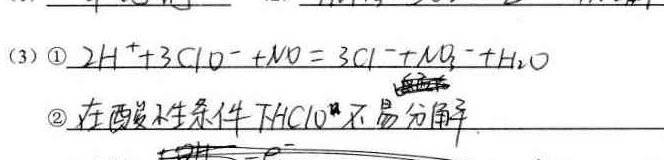 (3) ① 2H⁺+3ClO⁻+NO=3Cl⁻+NO₃⁻+H₂O
② 在酸性条件下HClO不易分解